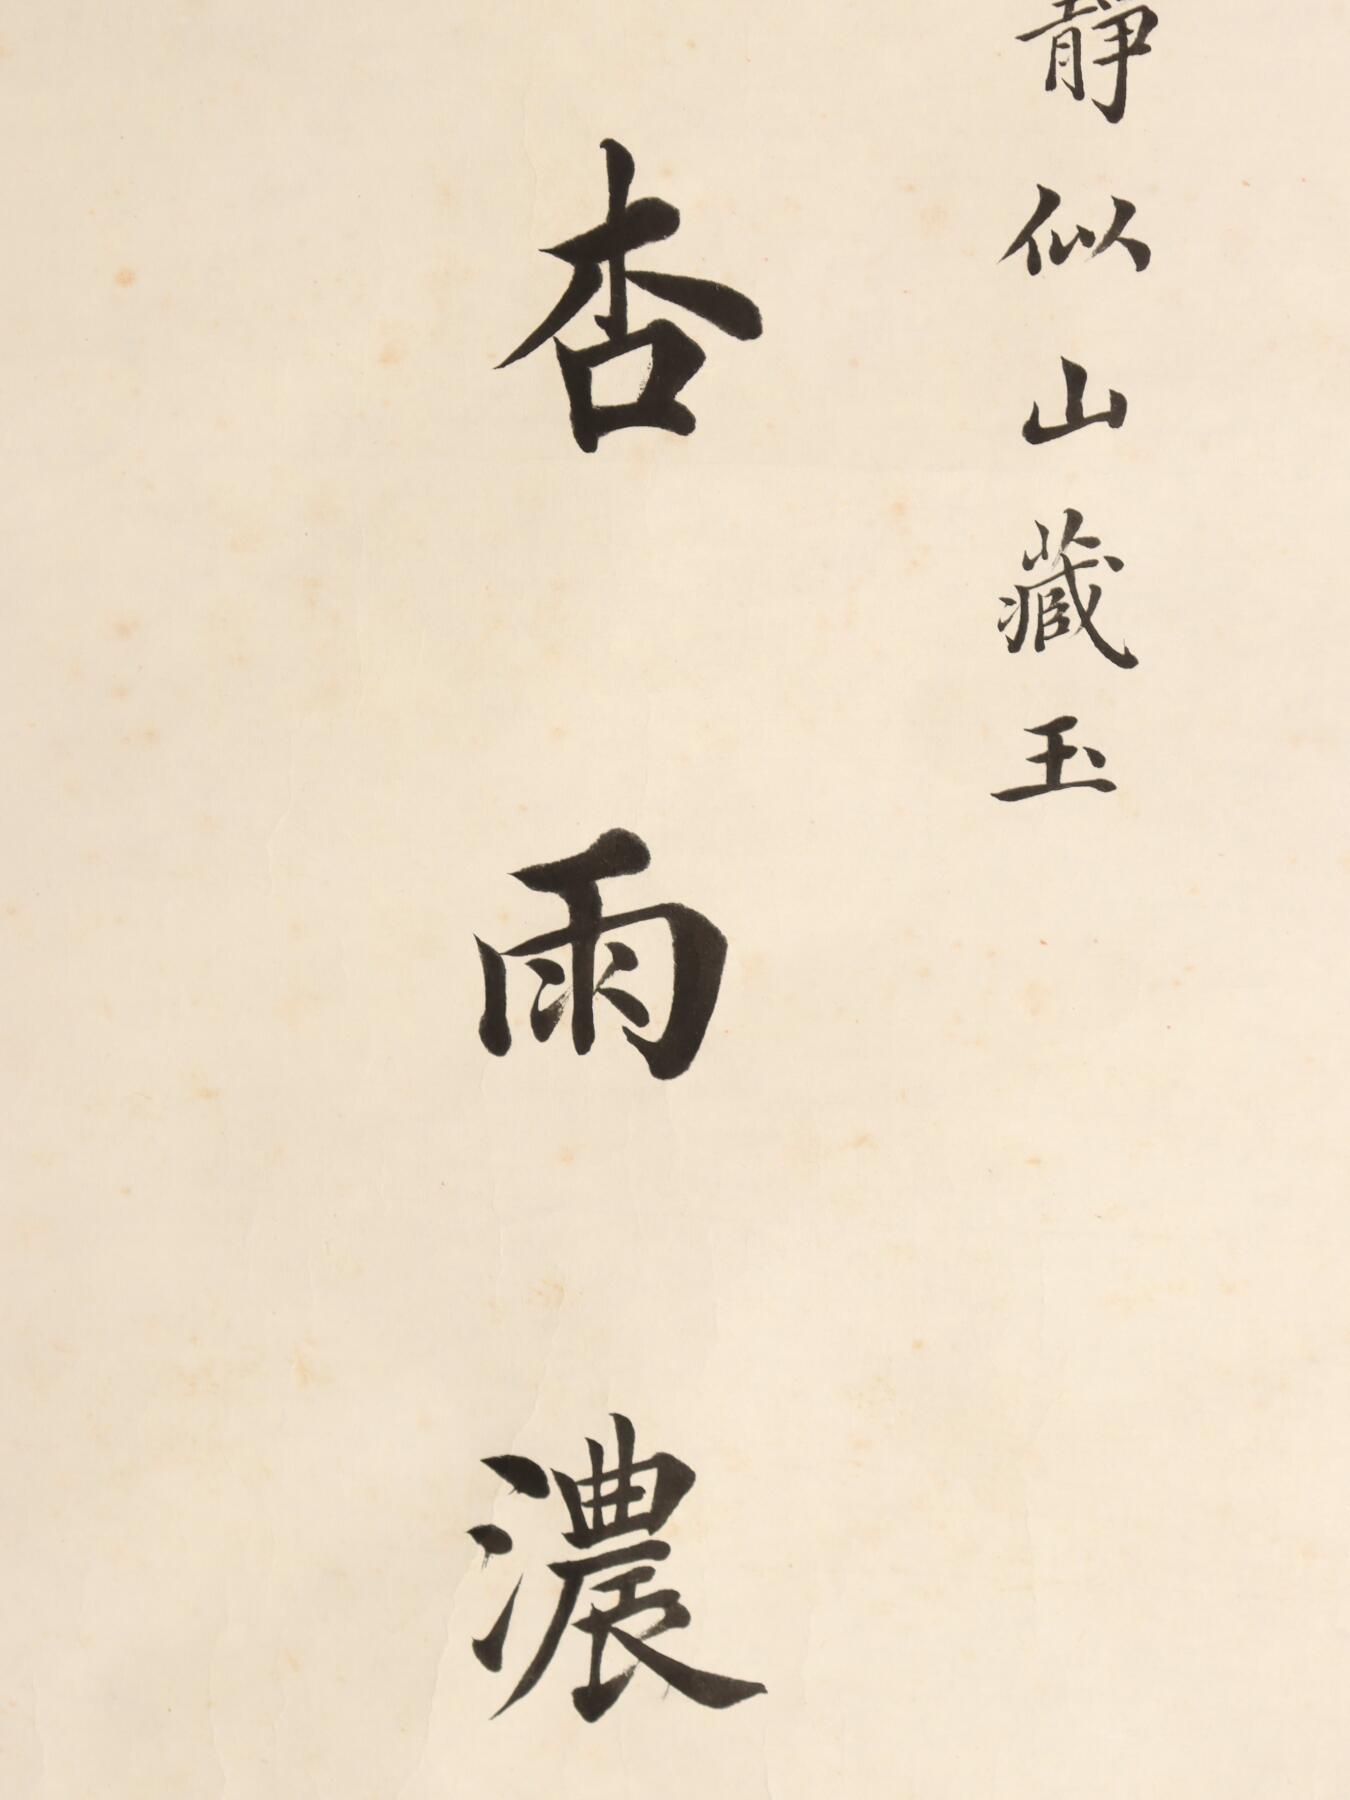 靜似山藏玉
杏雨濃